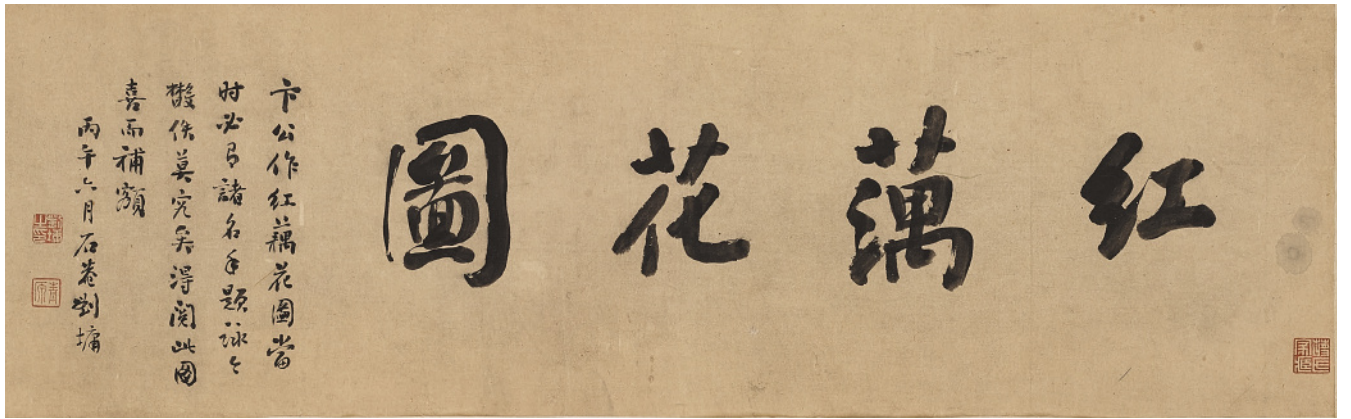 红藕花圖
卞公作红藕花圖當
时必有諸名手題詠今
散佚莫究矣得閱此圖
喜而補額
丙午六月石菴劉墉